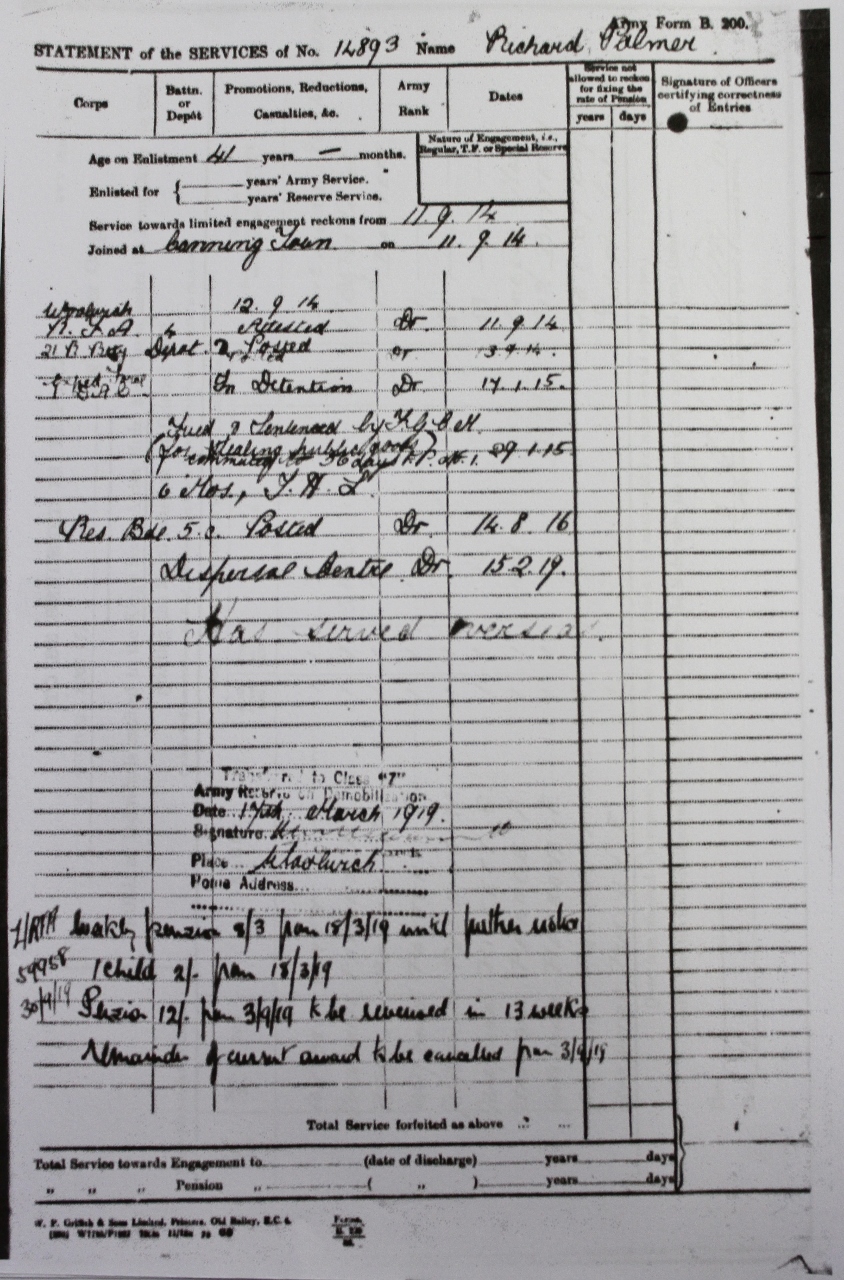 Army Form B. 200.
STATEMENT of the SERVICES of No. 14893 Name Richard Palmer
Corps
Battn. or Depôt
Promotions, Reductions, Casualties, &c.
Army Rank
Dates
Service not allowed to reckon for fixing the rate of Pension
years days
Signature of Officers certifying correctness of Entries
Nature of Engagement, i.e., Regular, T.F. or Special Reserve
Age on Enlistment 41 years — months.
Enlisted for { years' Army Service.
years' Reserve Service.
Service towards limited engagement reckons from 11.9.14
Joined at Canning Town on 11.9.14.
Woolwich 12.9.14
R.F.A. 4 Attested Dr. 11.9.14
Depot Posted
In Detention Dr 17.1.15.
Tried & Sentenced by F.G.C.M.
(For stealing public goods) 29.1.15
commuted to 56 days F.P. No. 1.
6 Mos, I.H.L.
Res. Bde. 5.c. Posted Dr. 14.8.16
Dispersal Centre Dr. 15.2.19.
Has served overseas.
Transferred to Class "Z"
Army Reserve on Demobilization
Date 17th March 1919.
Signature
Place Woolwich
Address
Weekly pension 8/3 from 18/3/19 until further notice
1 child 2/- from 18/3/19
59958
30/9/19 Pension 12/- from 3/9/19 to be reviewed in 13 weeks
remainder of current award to be cancelled from 3/9/19
Total Service forfeited as above ... ...
Total Service towards Engagement to (date of discharge) years days
" " " Pension " ( " ) years days
W. P. Griffith & Sons Limited, Printers, Old Bailey, E.C.4.
Forms